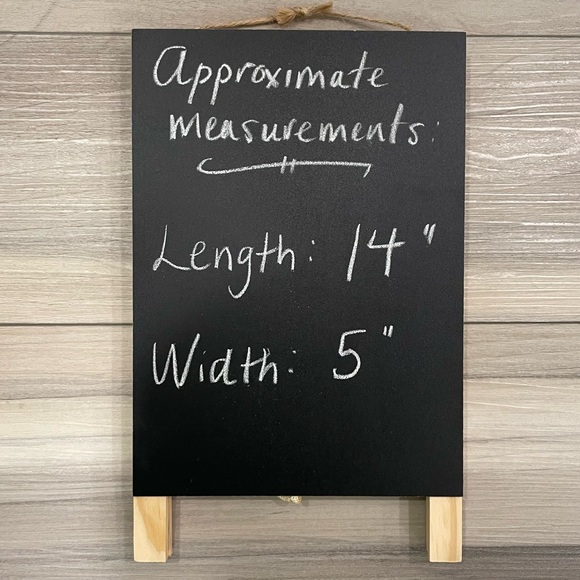 Approximate
Measurements:
Length: 14"
Width: 5"